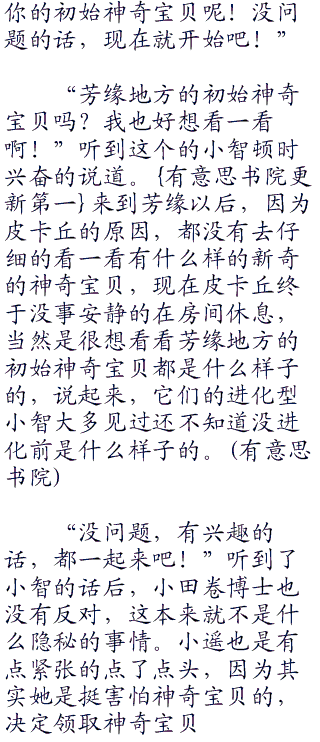 你的初始神奇宝贝呢！没问
题的话，现在就开始吧！”
“芳缘地方的初始神奇
宝贝吗？我也好想看一看
啊！”听到这个的小智顿时
兴奋的说道。{有意思书院更
新第一}来到芳缘以后，因为
皮卡丘的原因，都没有去仔
细的看一看有什么样的新奇
的神奇宝贝，现在皮卡丘终
于没事安静的在房间休息，
当然是很想看看芳缘地方的
初始神奇宝贝都是什么样子
的，说起来，它们的进化型
小智大多见过还不知道没进
化前是什么样子的。(有意思
书院)
“没问题，有兴趣的
话，都一起来吧！”听到了
小智的话后，小田卷博士也
没有反对，这本来就不是什
么隐秘的事情。小遥也是有
点紧张的点了点头，因为其
实她是挺害怕神奇宝贝的，
决定领取神奇宝贝